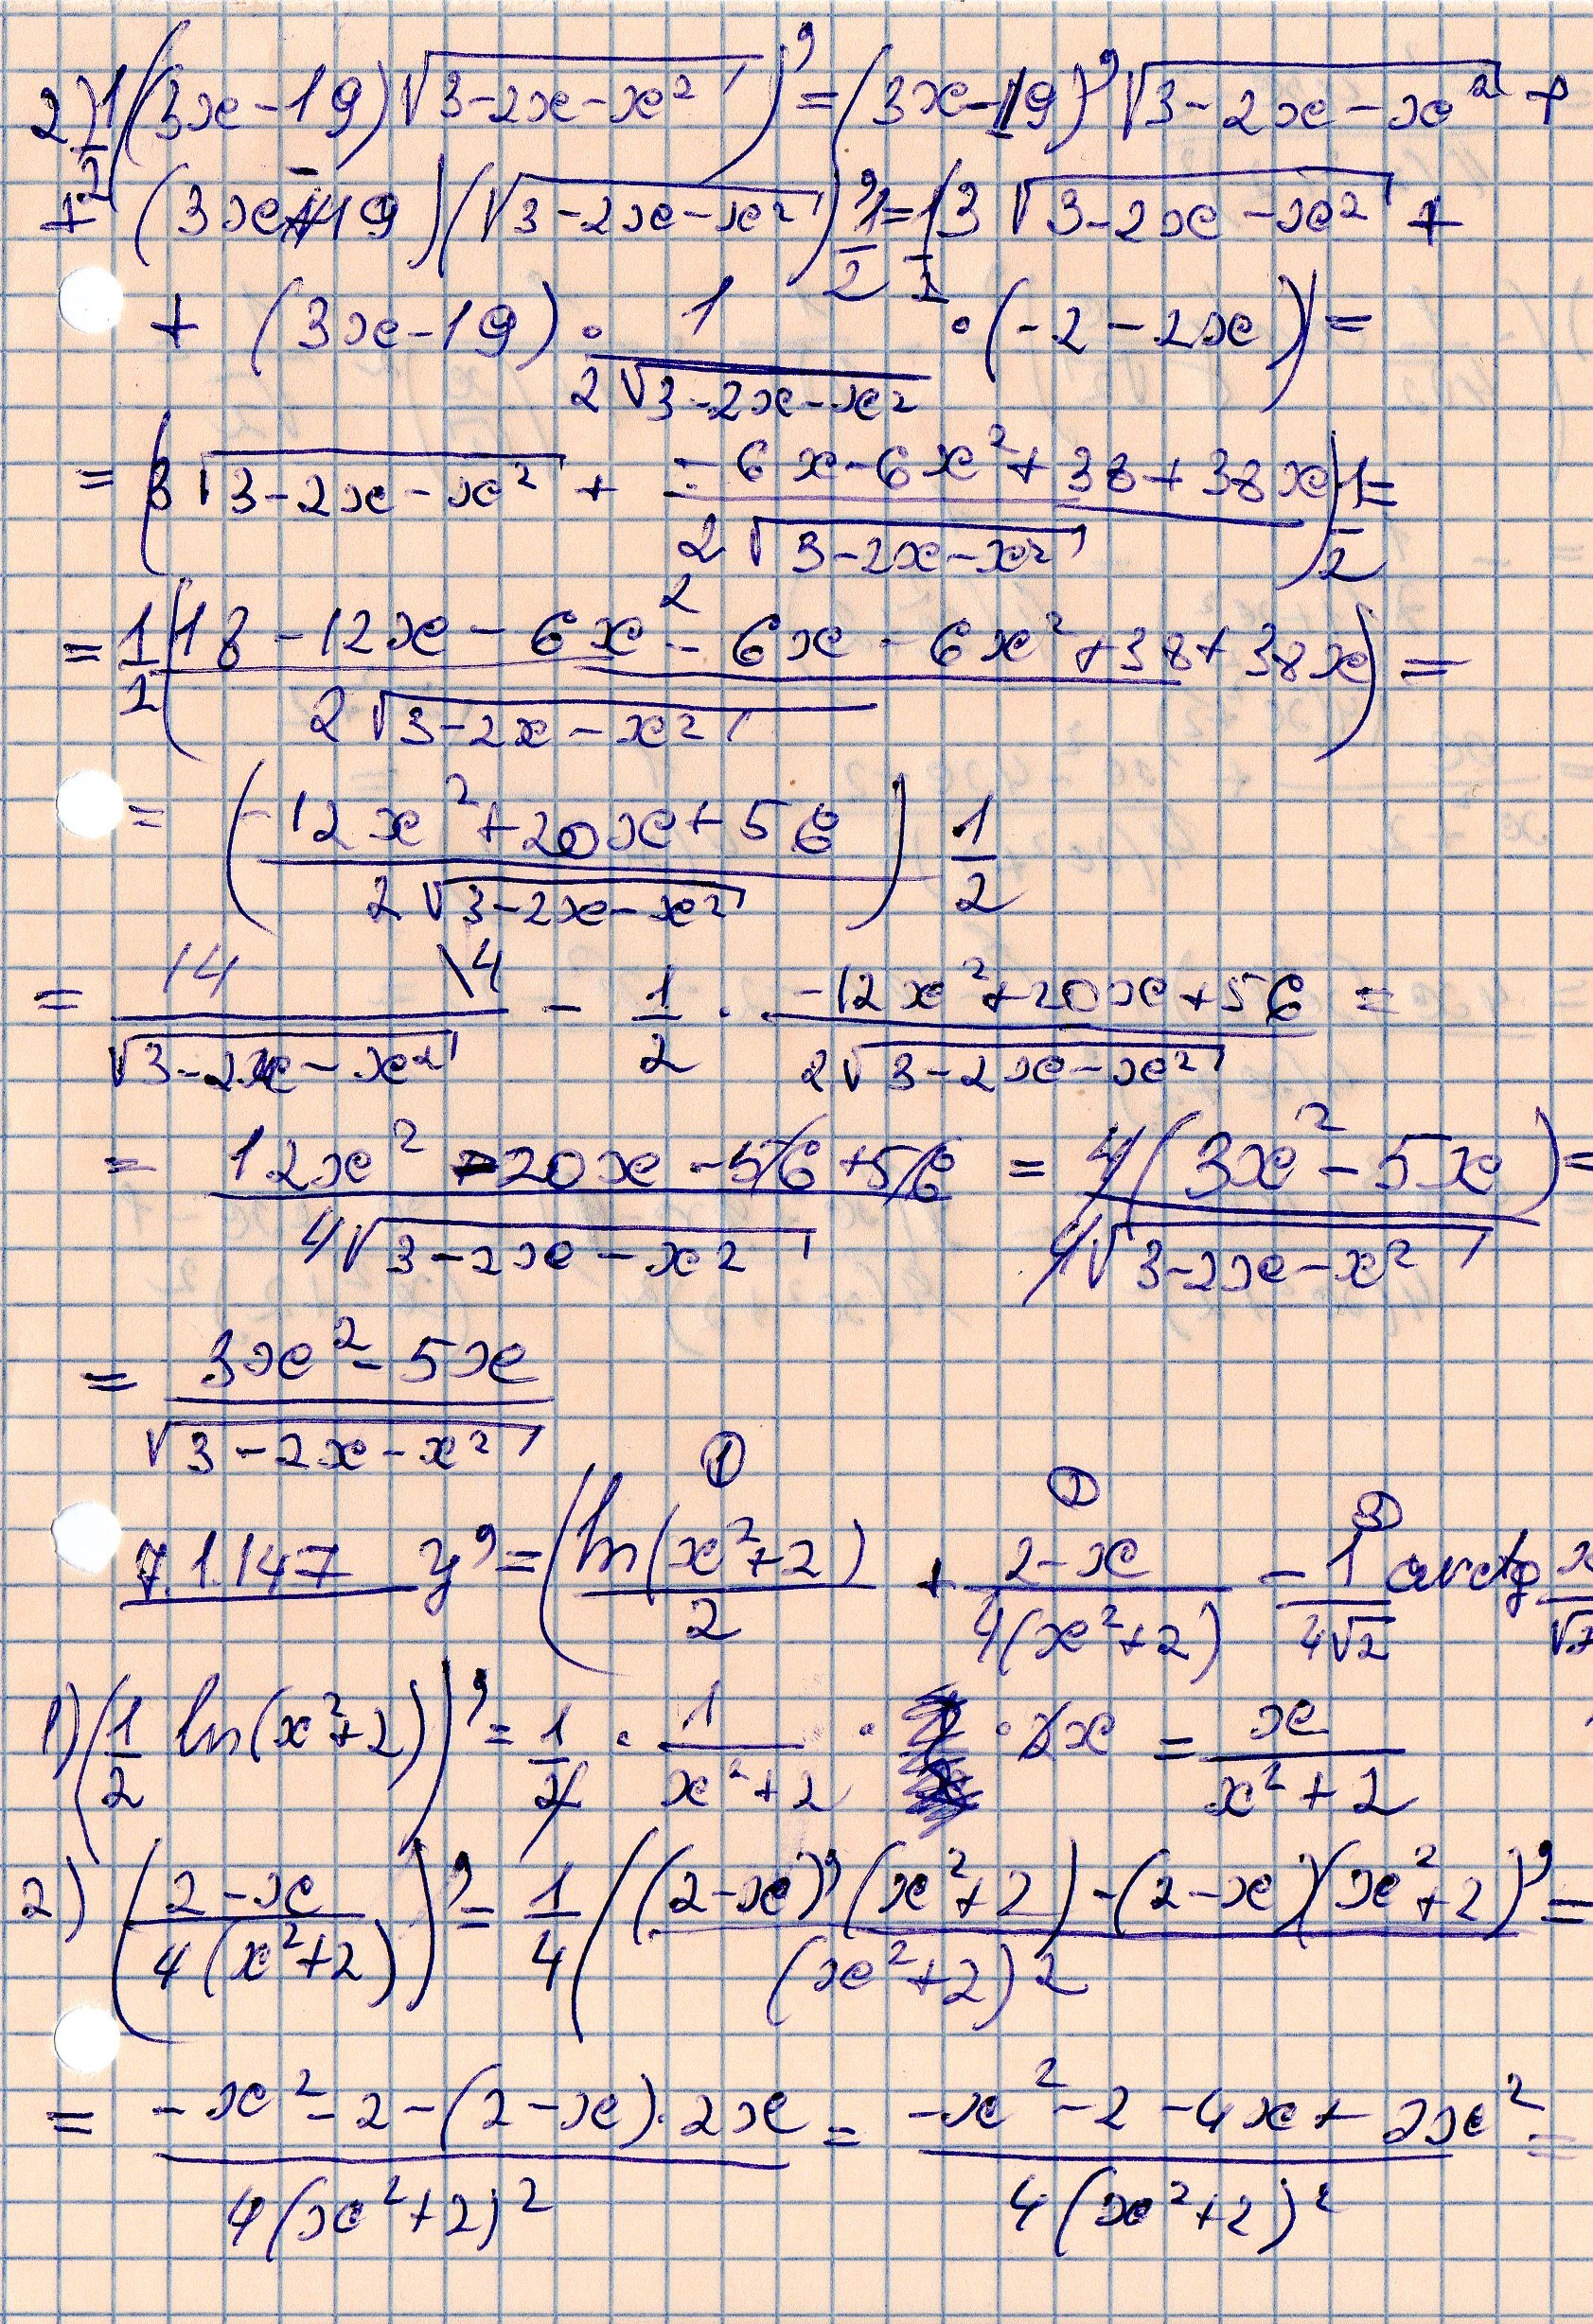 2) 1/2 ((3x-19)√(3-2x-x²))' = (3x-19)'√(3-2x-x²) +
+ (3x-19)(√(3-2x-x²))' 1/2 = 1/2 (3√(3-2x-x²) +
+ (3x-19) · 1/(2√(3-2x-x²)) · (-2-2x)) =
= (3√(3-2x-x²) + (-6x-6x²+38+38x)/(2√(3-2x-x²))) 1/2 =
= 1/2 ((18-12x-6x²-6x-6x²+38+38x)/(2√(3-2x-x²))) =
= ((-12x²+20x+56)/(2√(3-2x-x²))) 1/2
= 14/√(3-2x-x²) - 1/2 · (-12x²+20x+56)/(2√(3-2x-x²)) =
= (12x²-20x-56+56)/(4√(3-2x-x²)) = 4(3x²-5x)/(4√(3-2x-x²)) =
= (3x²-5x)/√(3-2x-x²)
① ② ③
7.1.147 y' = (ln(x²+2)/2 + (2-x)/(4(x²+2)) - 1/(4√2) arctg x/√2
1) (1/2 ln(x²+2))' = 1/2 · 1/(x²+2) · · 2x = x/(x²+2)
2) ((2-x)/(4(x²+2)))' = 1/4 (((2-x)'(x²+2)-(2-x)(x²+2)')/(x²+2)² =
= (-x²-2-(2-x)·2x)/(4(x²+2)²) = (-x²-2-4x+2x²)/(4(x²+2)²) =